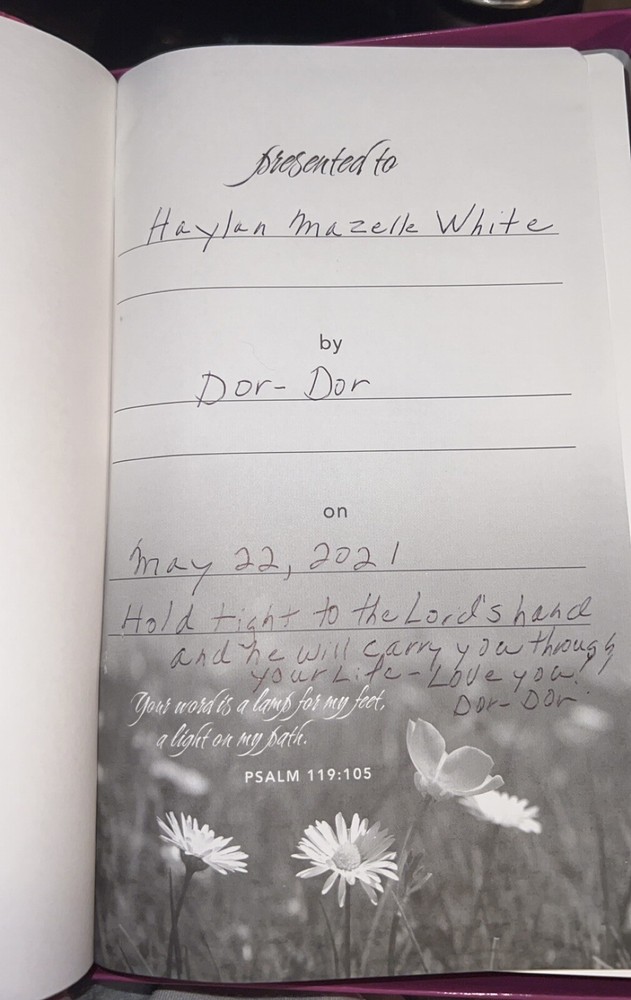 presented to
Haylan Mazelle White
by
Dor-Dor
on
May 22, 2021
Hold tight to the Lord's hand
and he will carry you through
your Life - Love you!!
Dor-Dor
Your word is a lamp for my feet,
a light on my path.
PSALM 119:105